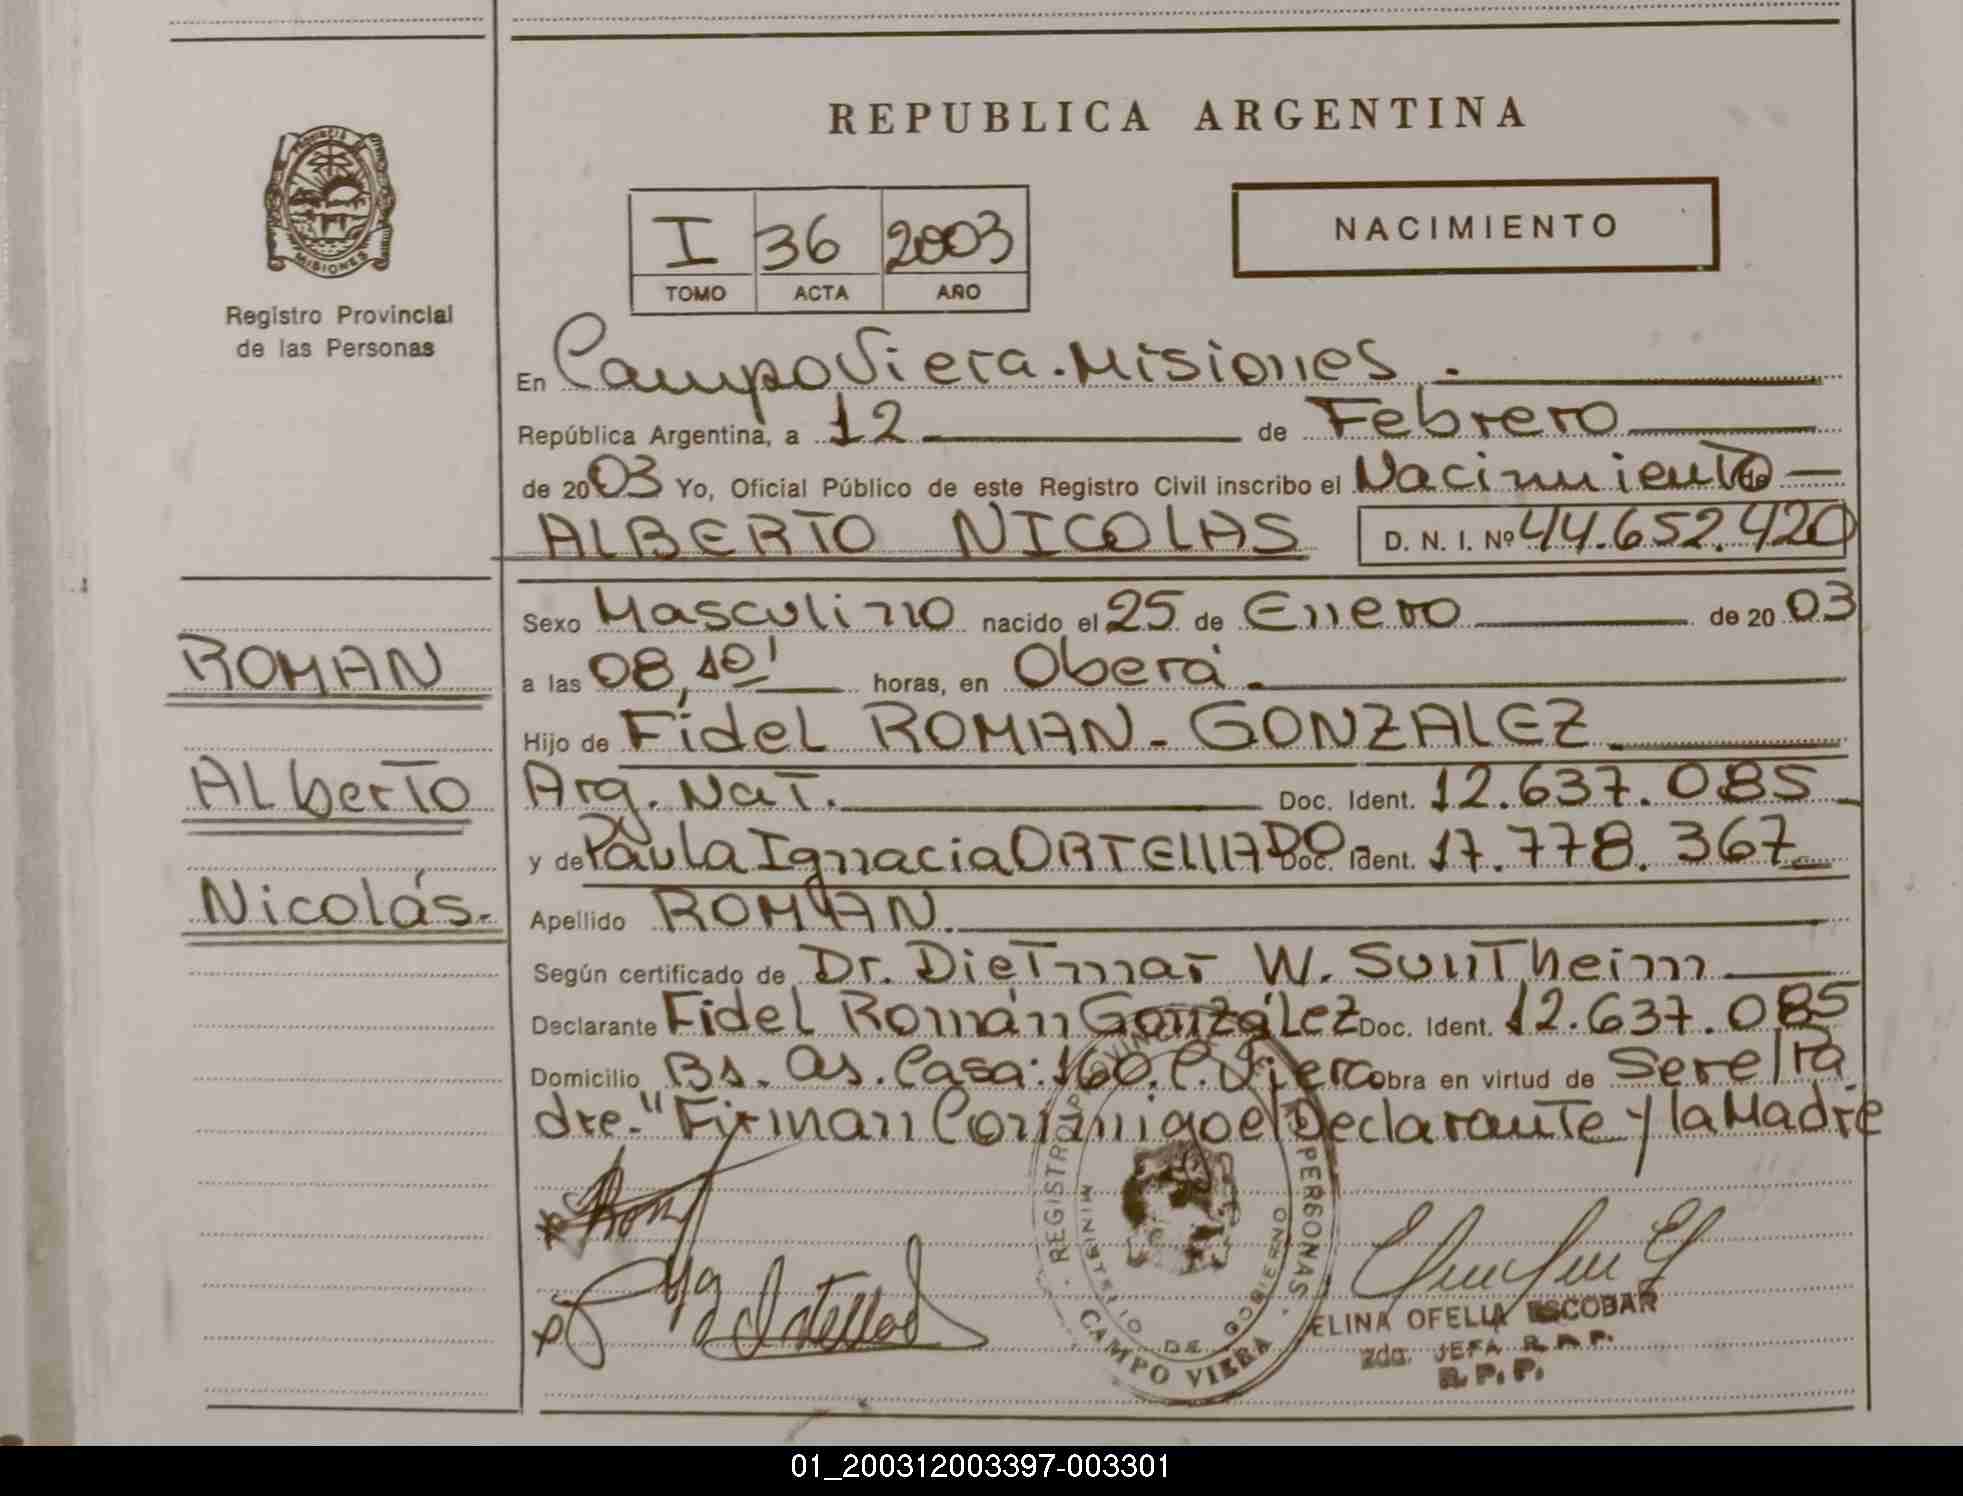 REPUBLICA ARGENTINA
PROVINCIA DE
MISIONES
Registro Provincial
de las Personas
I 36 2003
TOMO ACTA AÑO
NACIMIENTO
En Campo Viera. Misiones.
República Argentina, a 12 de Febrero
de 2003 Yo, Oficial Público de este Registro Civil inscribo el Nacimiento de
ALBERTO NICOLAS D. N. I. Nº 44.652.420
ROMAN
Alberto
Nicolás.
Sexo Masculino nacido el 25 de Enero de 2003
a las 08,10' horas, en Oberá.
Hijo de Fidel ROMAN - GONZALEZ
Arg. Nat. Doc. Ident. 12.637.085
y de Paula Ignacia ORTELLADO Doc. Ident. 17.778.367
Apellido ROMAN.
Según certificado de Dr. Dietmar W. Suntheim
Declarante Fidel Román González Doc. Ident. 12.637.085
Domicilio Bs. As. Casa: 160. C. Viera obra en virtud de Ser el Pa
dre." Firman Conmigo el Declarante y la Madre
REGISTRO PROVINCIAL PERSONAS
MINISTERIO DE GOBIERNO
CAMPO VIERA
ELINA OFELIA ESCOBAR
2da. JEFA R.P.P.
R.P.P.
01_200312003397-003301